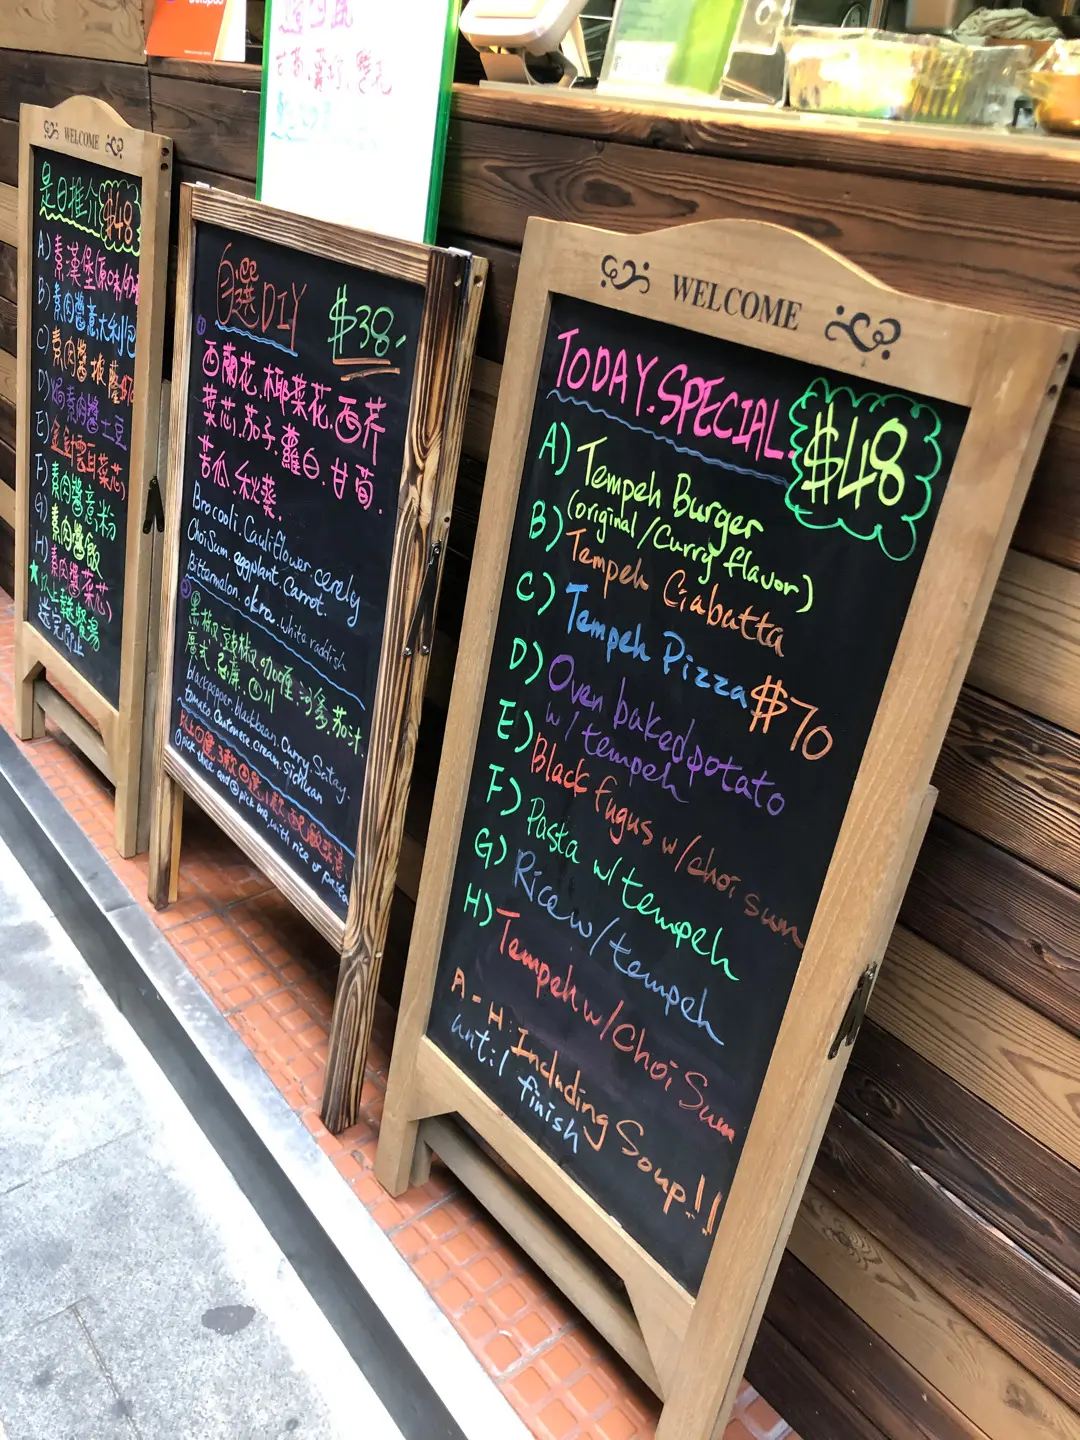 WELCOME
是日推介 $48
A) 素漢堡(原味/咖
B) 素肉醬意大利包
C) 素肉醬披薩$70
D) 焗素肉醬土豆
E) 金針雲耳菜芯
F) 素肉醬意粉
G) 素肉醬飯
H) 素肉醬菜芯
★以上轉餐湯
送完即止
自選DIY $38.
① 西蘭花.椰菜花.西芹
菜芯.茄子.蘿白.甘荀.
苦瓜.秋葵.
Brocooli. Cauliflower cerely
Choi Sum. eggplant. Carrot.
Bittermelon. okra. white raddish
② 黑椒.豉椒.咖喱.沙爹.茄汁.
blackpepper. blackbean. Curry. Satay.
tomato. Cantonese. cream. sichuan
① pick three and ② pick one, with rice or pasta
WELCOME
TODAY.SPECIAL. $48
A) Tempeh Burger
(original/Curry flavor)
B) Tempeh Ciabatta
C) Tempeh Pizza $70
D) Oven baked potato
w/ tempeh
E) Black fugus w/choi sum
F) Pasta w/ tempeh
G) Rice w/ tempeh
H) Tempeh w/ Choi Sum
A - H: Including Soup!!
until finish